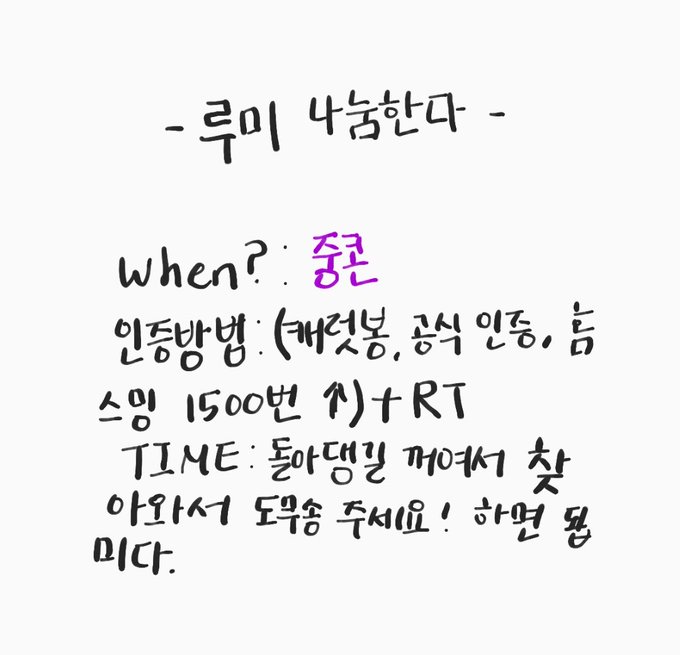 - 루미 나눔한다 -
when? : 중콘
인증방법 : (캐럿봉, 공식 인증, 늠
스밍 1500번 ↑) + RT
TIME : 돌아댕길 꺼여서 찾
아와서 도무송 주세요! 하면 됩
미다.